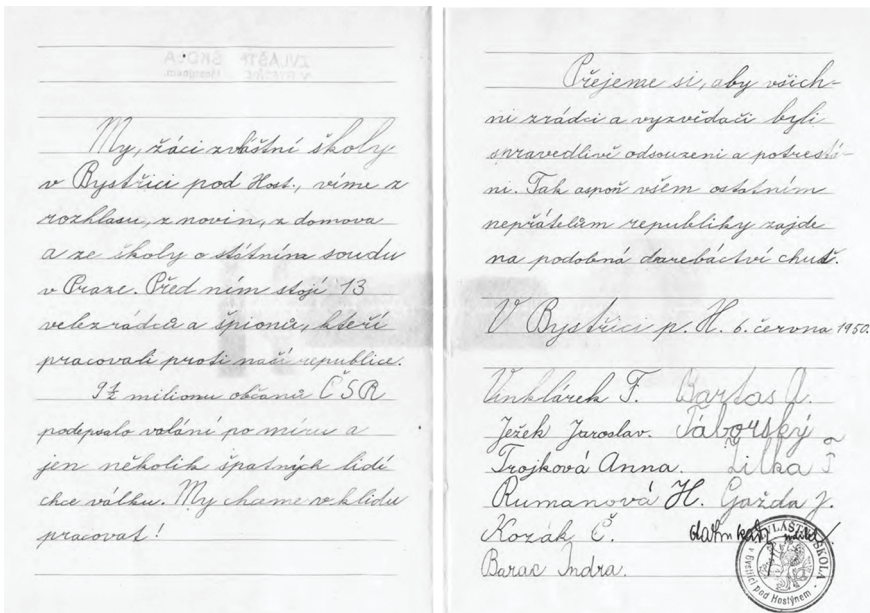 ZVLÁŠTNÍ ŠKOLA
My, žáci zvláštní školy
v Bystřici pod Host., víme z
rozhlasu, z novin, z domova
a ze školy o státním soudu
v Praze. Před ním stojí 13
velezrádců a špionů, kteří
pracovali proti naší republice.
9½ milionu občanů ČSR
podepsalo volání po míru a
jen několik špatných lidí
chce válku. My chceme v klidu
pracovat!
Přejeme si, aby všich-
ni zrádci a vyzvědači byli
spravedlivě odsouzeni a potrestá-
ni. Tak aspoň všem ostatním
nepřátelům republiky zajde
na podobná darebáctví chuť.
V Bystřici p. H. 6. června 1950.
Vinklárek F. Bartas A.
Ježek Jaroslav. Táborský
Trojková Anna. Žilka F
Rumanová H. Gažda J.
Kozák Č.
Barac Indra.
ZVLÁŠTNÍ ŠKOLA
v Bystřici pod Hostýnem